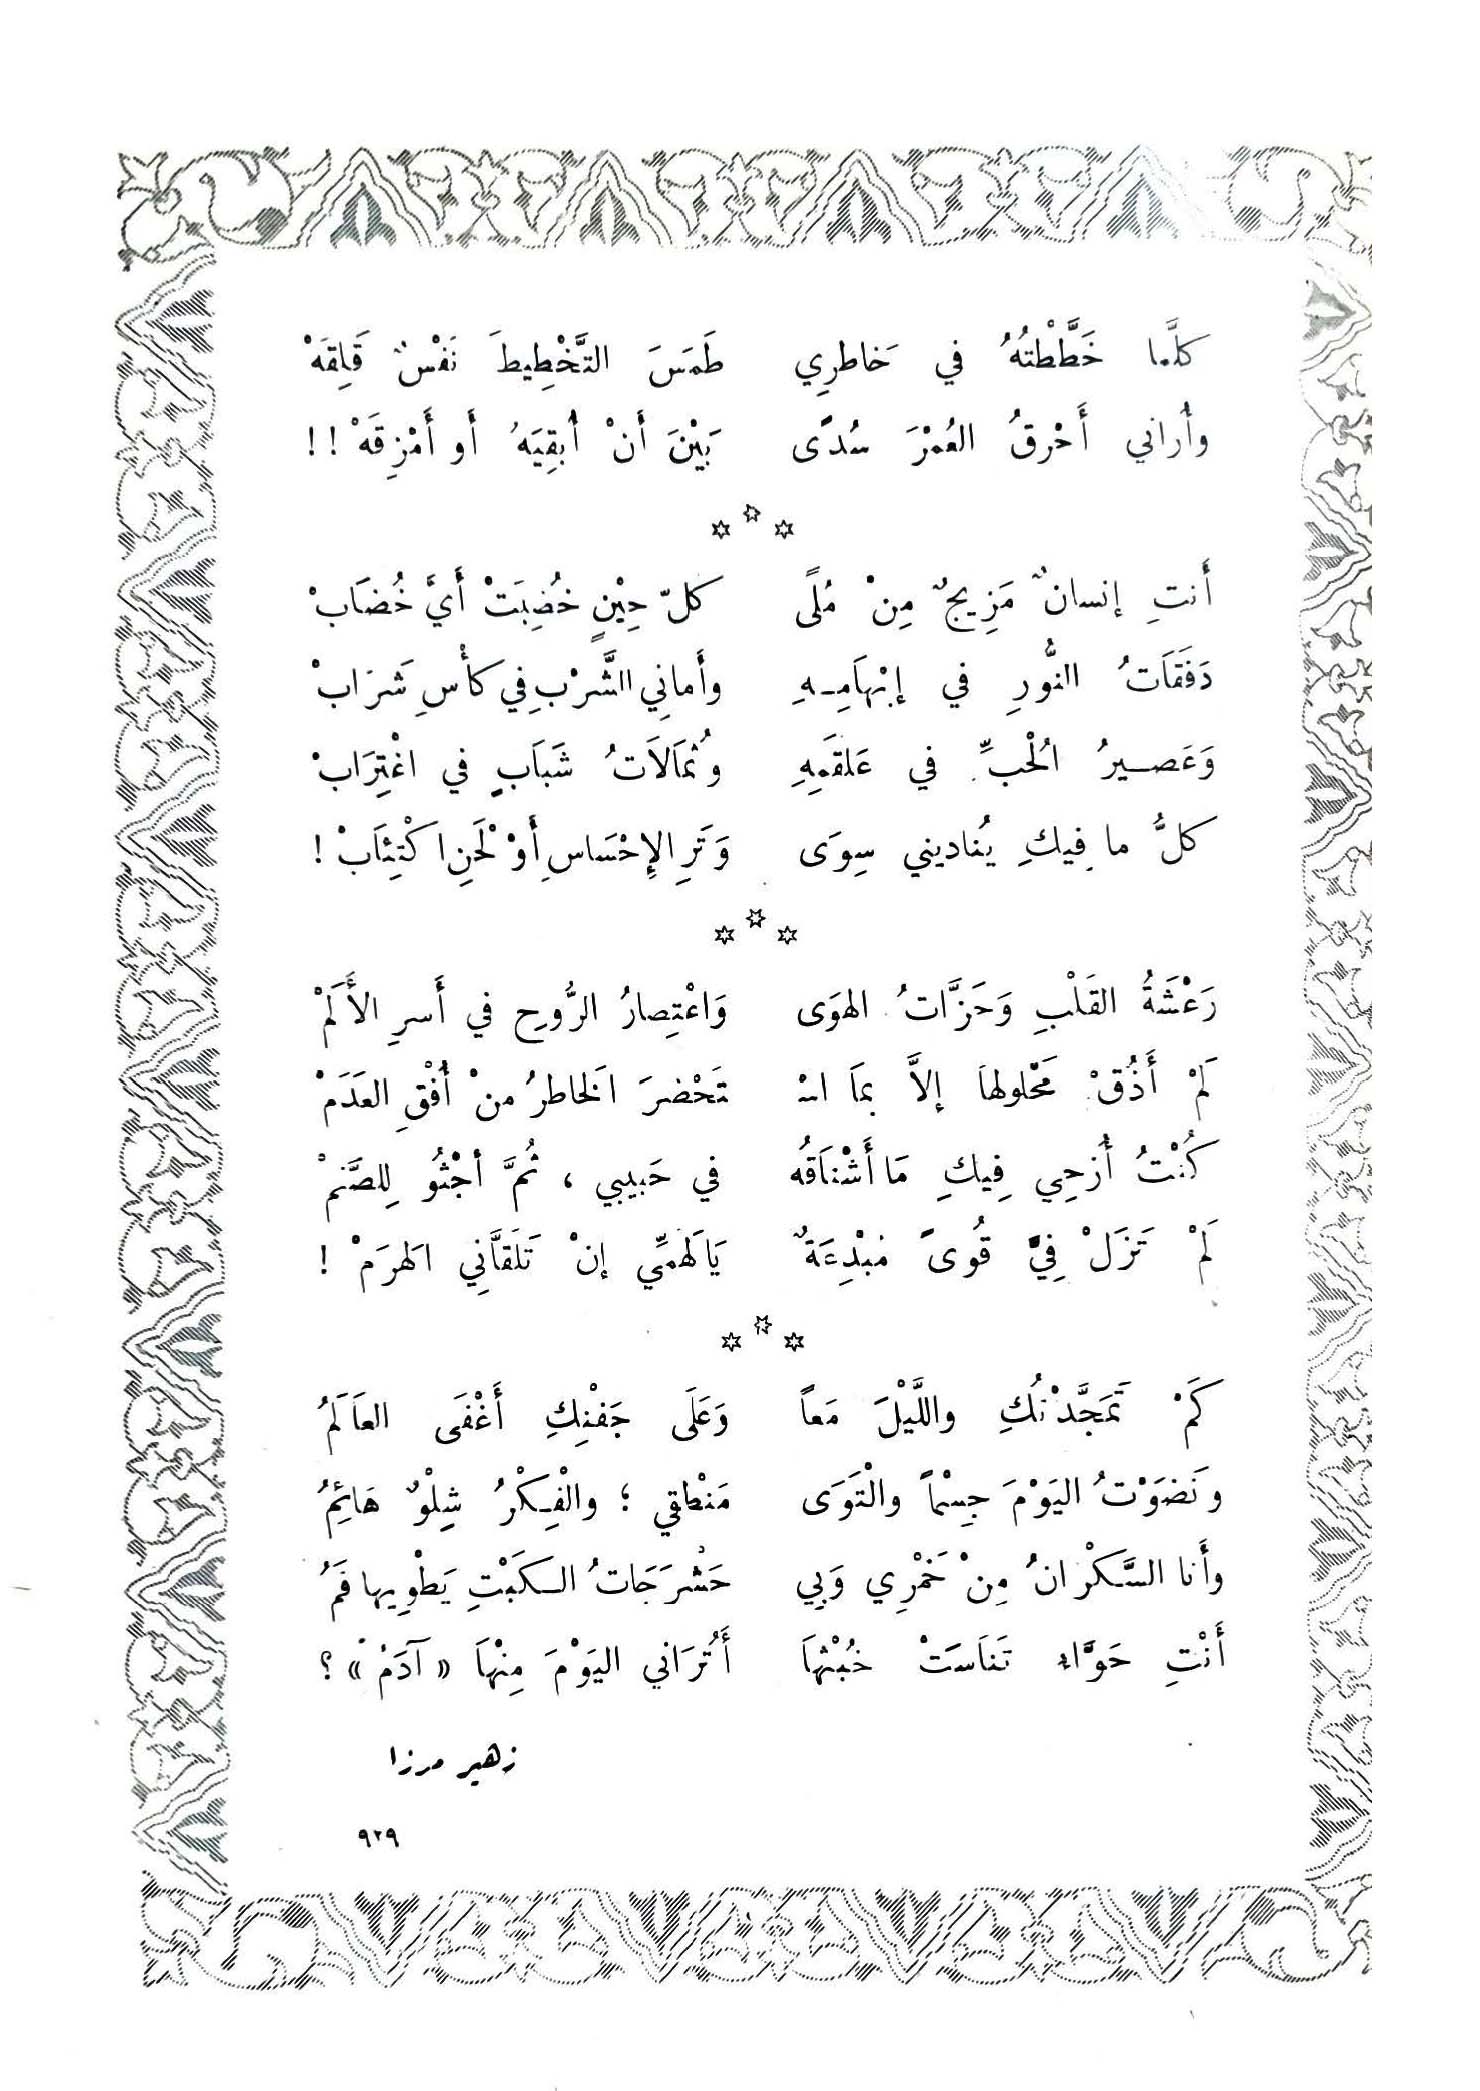 كلَّما خَطَّطْتهُ في خَاطرِي طَمَسَ التَّخْطِيطَ نَفْسٌ قَلِقَهْ
وأُراني أَحْرقُ العُمْرَ سُدًى بَيْنَ أَنْ أُبقِيَهُ أَو أَمْزِقَهْ !!
أَنتِ إنسانٌ مَزِيجٌ مِنْ مُلًى كلّ حِيْنٍ خُضِبَتْ أَيَّ خُضَابْ
دَفَقَاتُ النُّورِ في إبْهَامِـهِ وأَمانِي الشَّرْبِ فِي كأْسِ شَرَابْ
وَعَصـيرُ الُحْبِّ في عَلقَمِهِ وُثمَالَاتُ شَبَابٍ في اغْتِرَابْ
كلُّ ما فِيكِ يُناديني سِوَى وَتَرِ الإِحْسَاسِ أَوْ لْحَنِ اكْتِئَابْ !
رَعْشَةُ القَلْبِ وَحَزَّاتُ الهوَى وَاعْتِصارُ الرُّوحِ في أَسرِ الأَلَمْ
لَمْ أَذُقْ مَحْلولهَا إلاَّ بمَا اسْـ تَحْضرَ الَخاطرُ منْ أُفْقِ العَدَمْ
كُنْتُ أُزحِي فِيكِ مَا أَشْتَاقهُ في حَبيبي ، ثُمَّ أجْثُو لِلصَّنمْ
لَمْ تَزَلْ فِيَّ قُوىً مُبْدِعَةٌ يَا لَهمِّي إنْ تَلَقاَّني الَهرَمْ !
كَمْ تَمَجَّدْتُكِ واللَّيْلَ مَعاً وَعَلَى جَفْنِكِ أَغْفَى العاَلَمُ
وَنَضوَوْتُ اليَوْمَ جِسْماً والْتَوَى مَنْطقِي ؛ والْفِـكْرُ شِلْوٌ هَائِمُ
وأَنا السَّكْرَانُ مِنْ خَمْرِي وَبِي حَشْرَجَاتُ الـكَبْتِ يَطْوِيها فَمُ
أَنْتِ حَوَّاء تَنَاسَتْ خُبْثهَا أَتُرَاني اليَوْمَ مِنْهَا « آدَمُ » ؟
زهير مرزا
٩٢٩